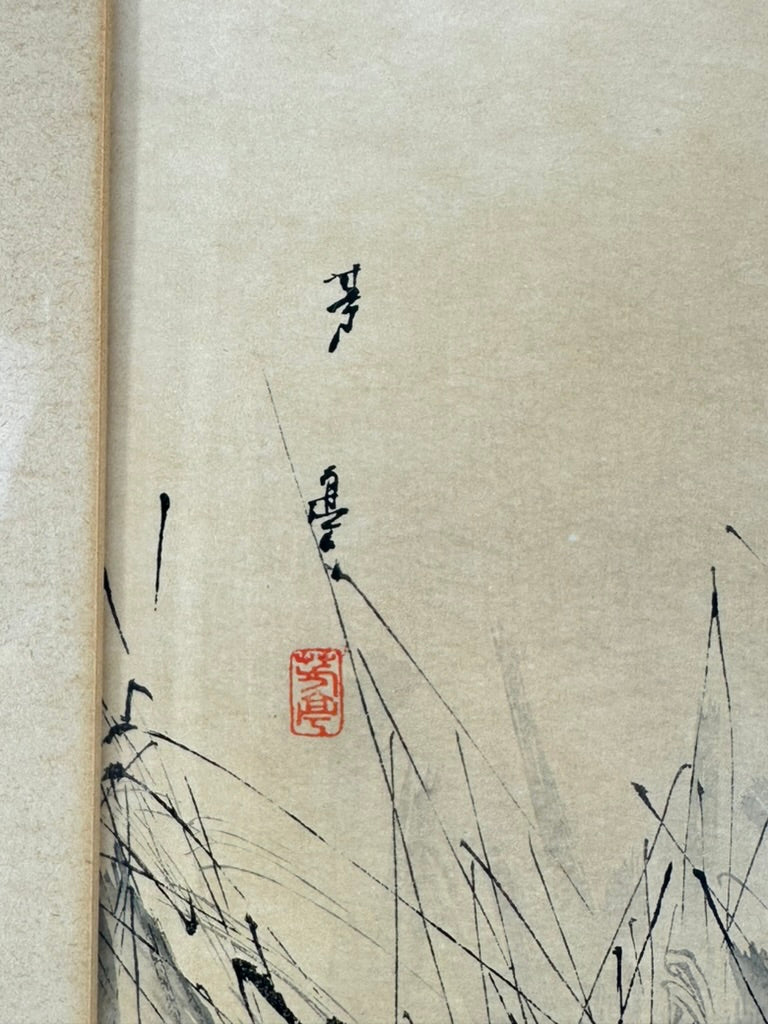 芳
亭
芳亭